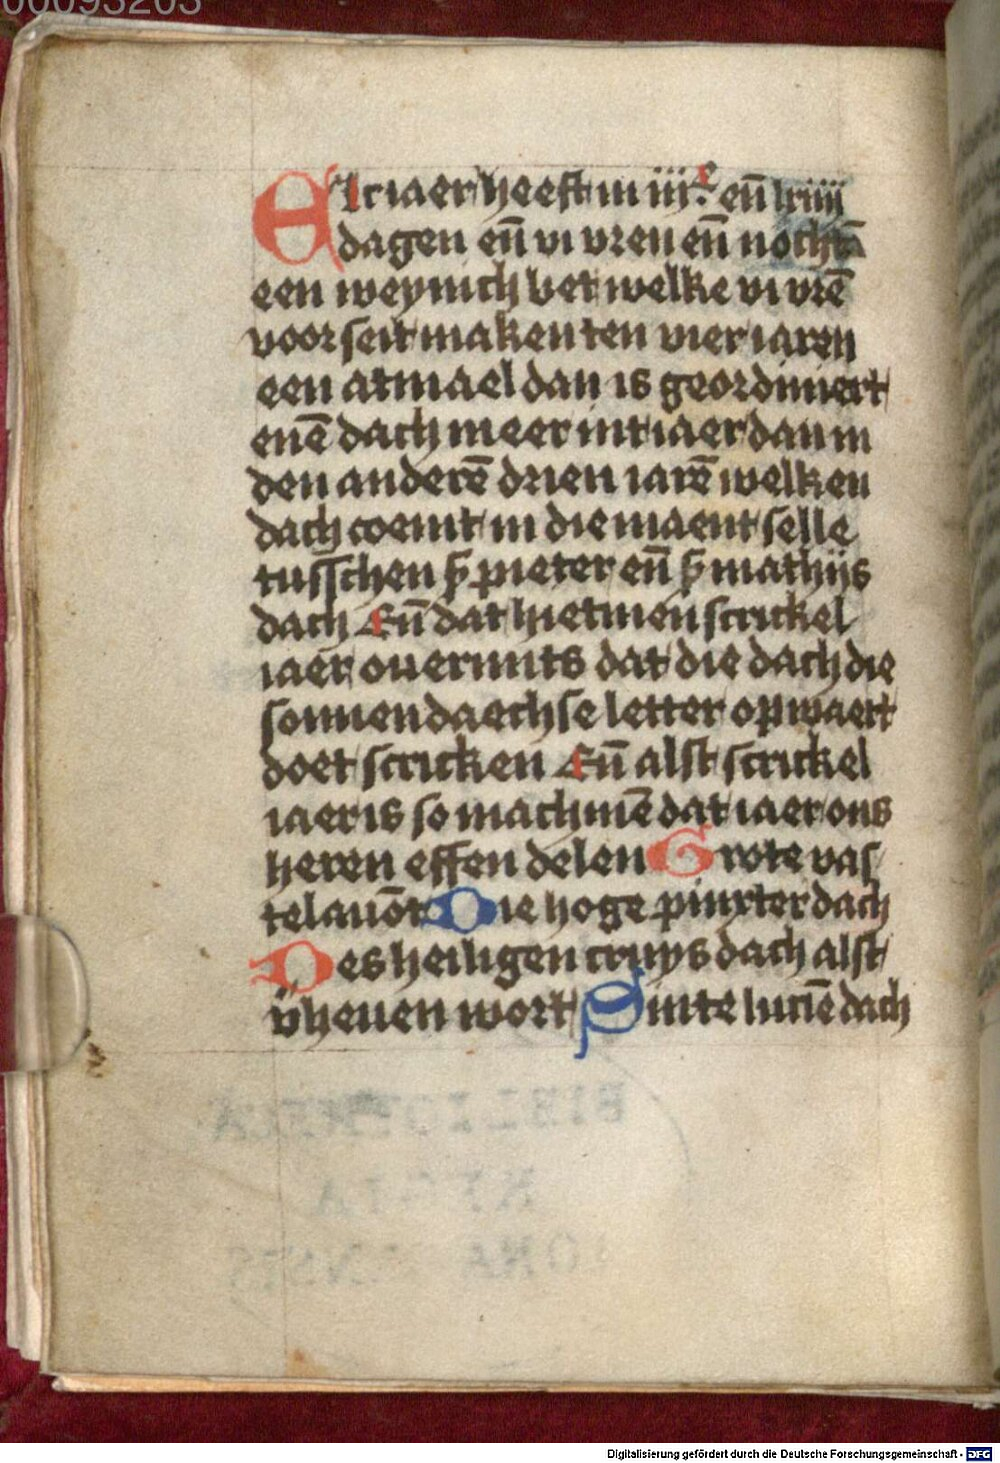 00093203
Elc iaer heeft in iijᶜ. eñ lxiiij
dagen eñ vi vren eñ nochtā
een weynich bet welke vi vrē
voorseit maken ten vier iaren
een atmael dan is geordiniert
enē dach meer int iaer dan in
den anderē drien iarē welken
dach coemt in die maent selle
tusschen sꝭ pieter eñ sꝭ mathijs
dach Eñ dat hietmen scrickel
iaer ouermits dat die dach die
sonnendaechse letter opwaert
doet scricken Eñ alst scrickel
iaer is so machmē dat iaer ons
heren effen delen Grote vas
telauōt Die hoge pinxterdach
Des heiligen cruys dach alst
vheuen wort Sinte luciē dach
BIBLIOTHECA
REGIA
MONACENSIS
Digitalisierung gefördert durch die Deutsche Forschungsgemeinschaft - DFG